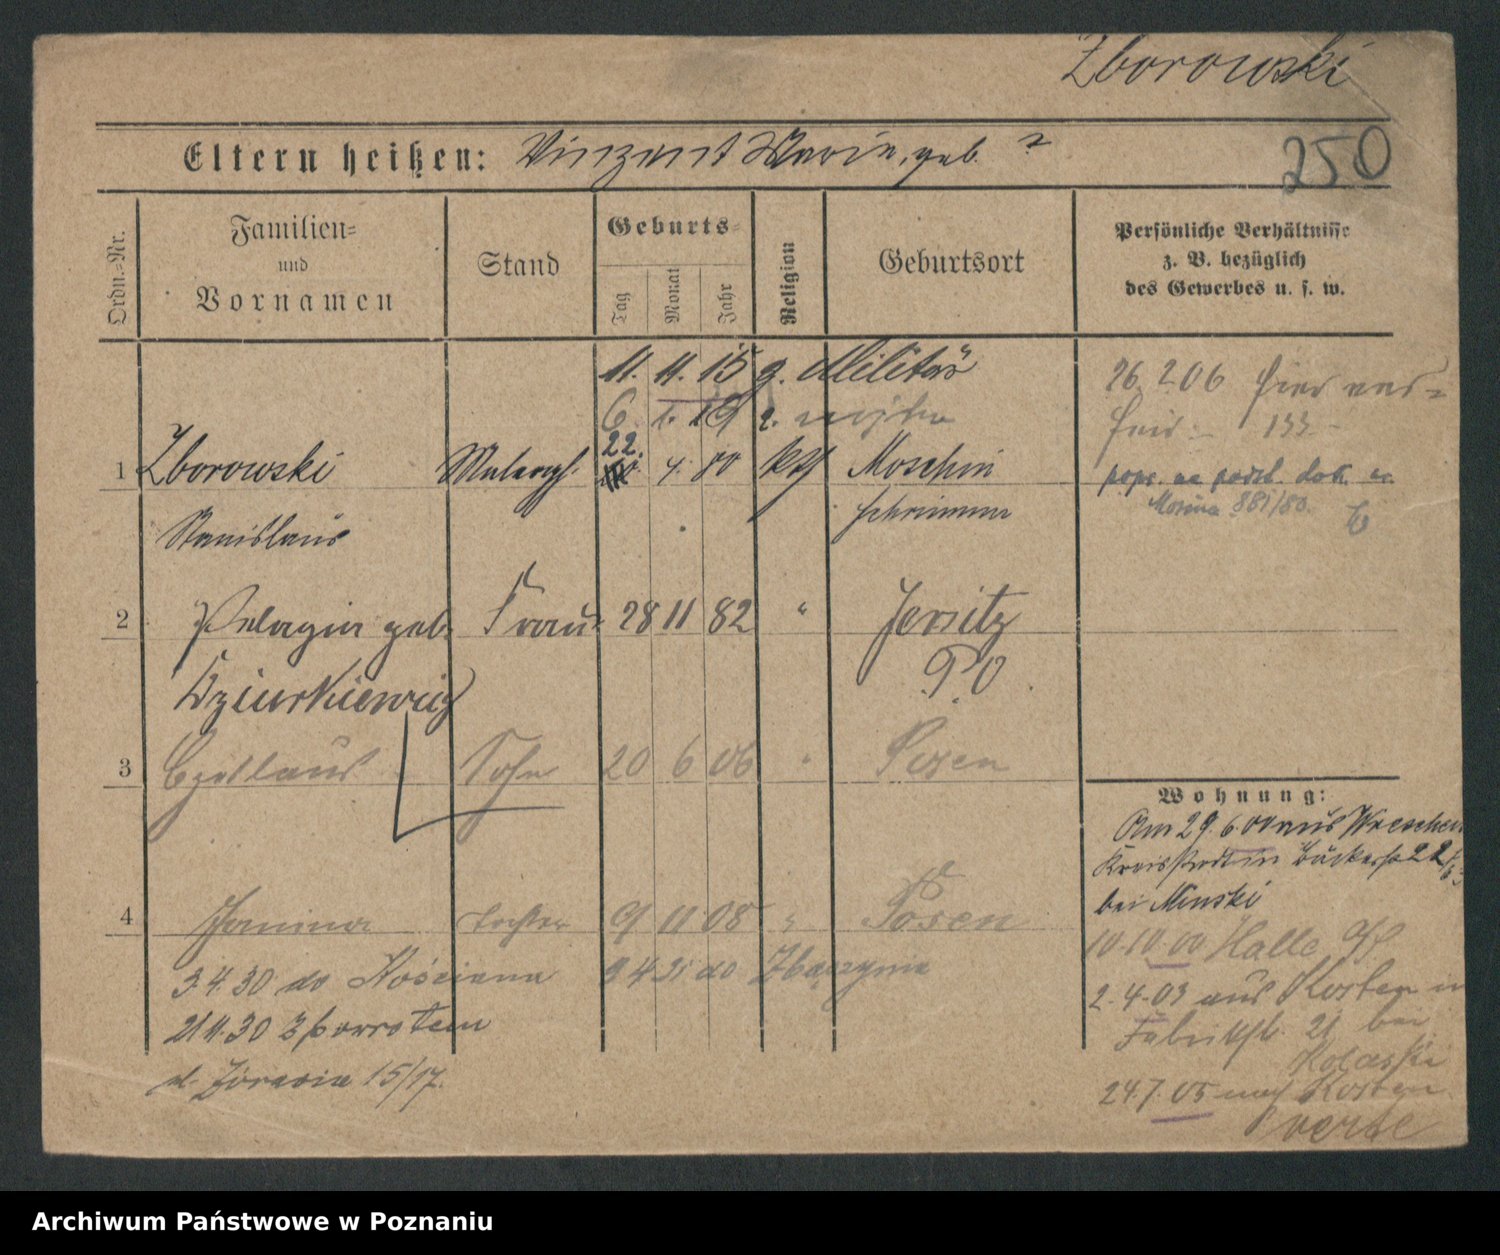 Zborowski
250
Eltern heißen: Vinzent Marie, geb. ?
Ordn.-Nr.
Familien- und Vornamen
Stand
Geburts-
Tag
Monat
Jahr
Religion
Geburtsort
Persönliche Verhältnisse
z. B. bezüglich
des Gewerbes u. s. w.
11. 11. 15 z. Militär
6. 1. 19 z. wojska
26. 2. 06 hier ver-
heir. 133
1 Zborowski 22. 4. 80 kth Moschin
Stanislaus Schrimm
popr. na podst. dok. u.
Mosina 881/80.
2 Pelagia geb. Frau 28 11 82 " Jersitz
Dziurkiewicz P.O.
3 Czeslaus Sohn 20 6 06 " Posen
4 Janina Tochter 9 11 08 " Posen
3.4.30 do Kościana 9 4 31 do Zbąszynia
21 11.30 z powrotem
ul. Żórawia 15/17.
Wohnung:
Am 29. 6. 00 aus Wreschen
bei Minski
10.10.00 Halle
2.4.03 aus Kosten in
Fabrikstr. 21 bei
24.7.05 nach Kosten
verte
Archiwum Państwowe w Poznaniu